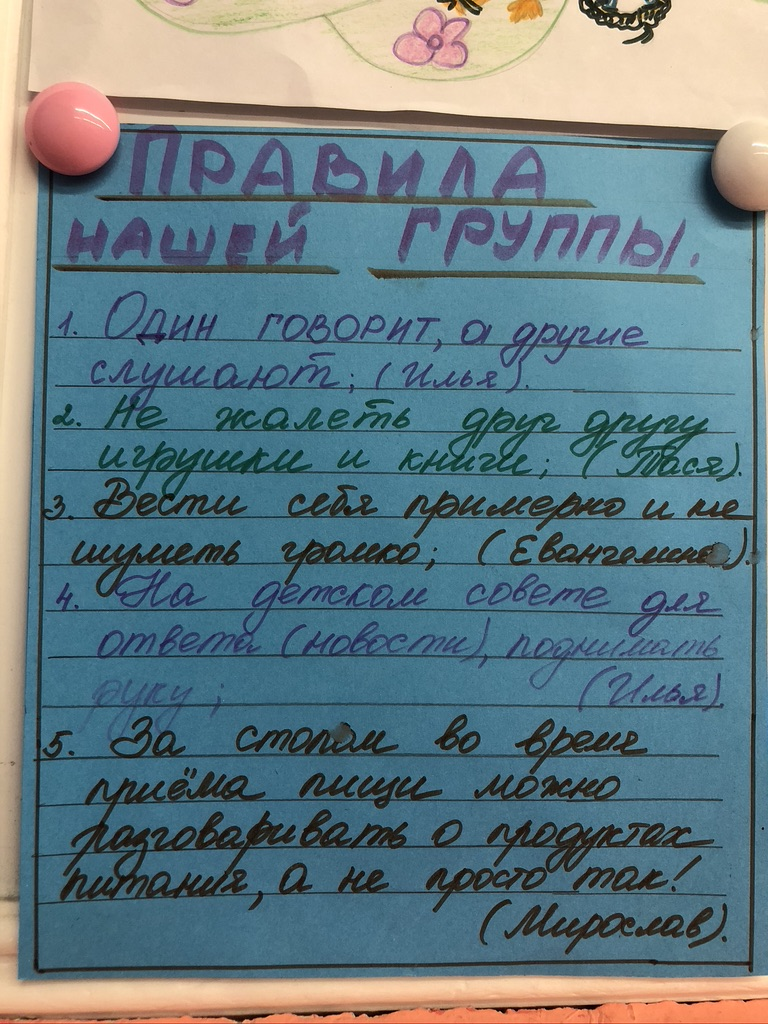 ПРАВИЛА
НАШЕЙ ГРУППЫ.
1. Один говорит, а другие
слушают; (Илья).
2. Не жалеть друг другу
игрушки и книги; (Тася).
3. Вести себя примерно и не
шуметь громко; (Евангелина).
4. На детском совете для
ответа (новости), поднимать
руку; (Илья).
5. За столом во время
приёма пищи можно
разговаривать о продуктах
питания, а не просто так!
(Мирослав).